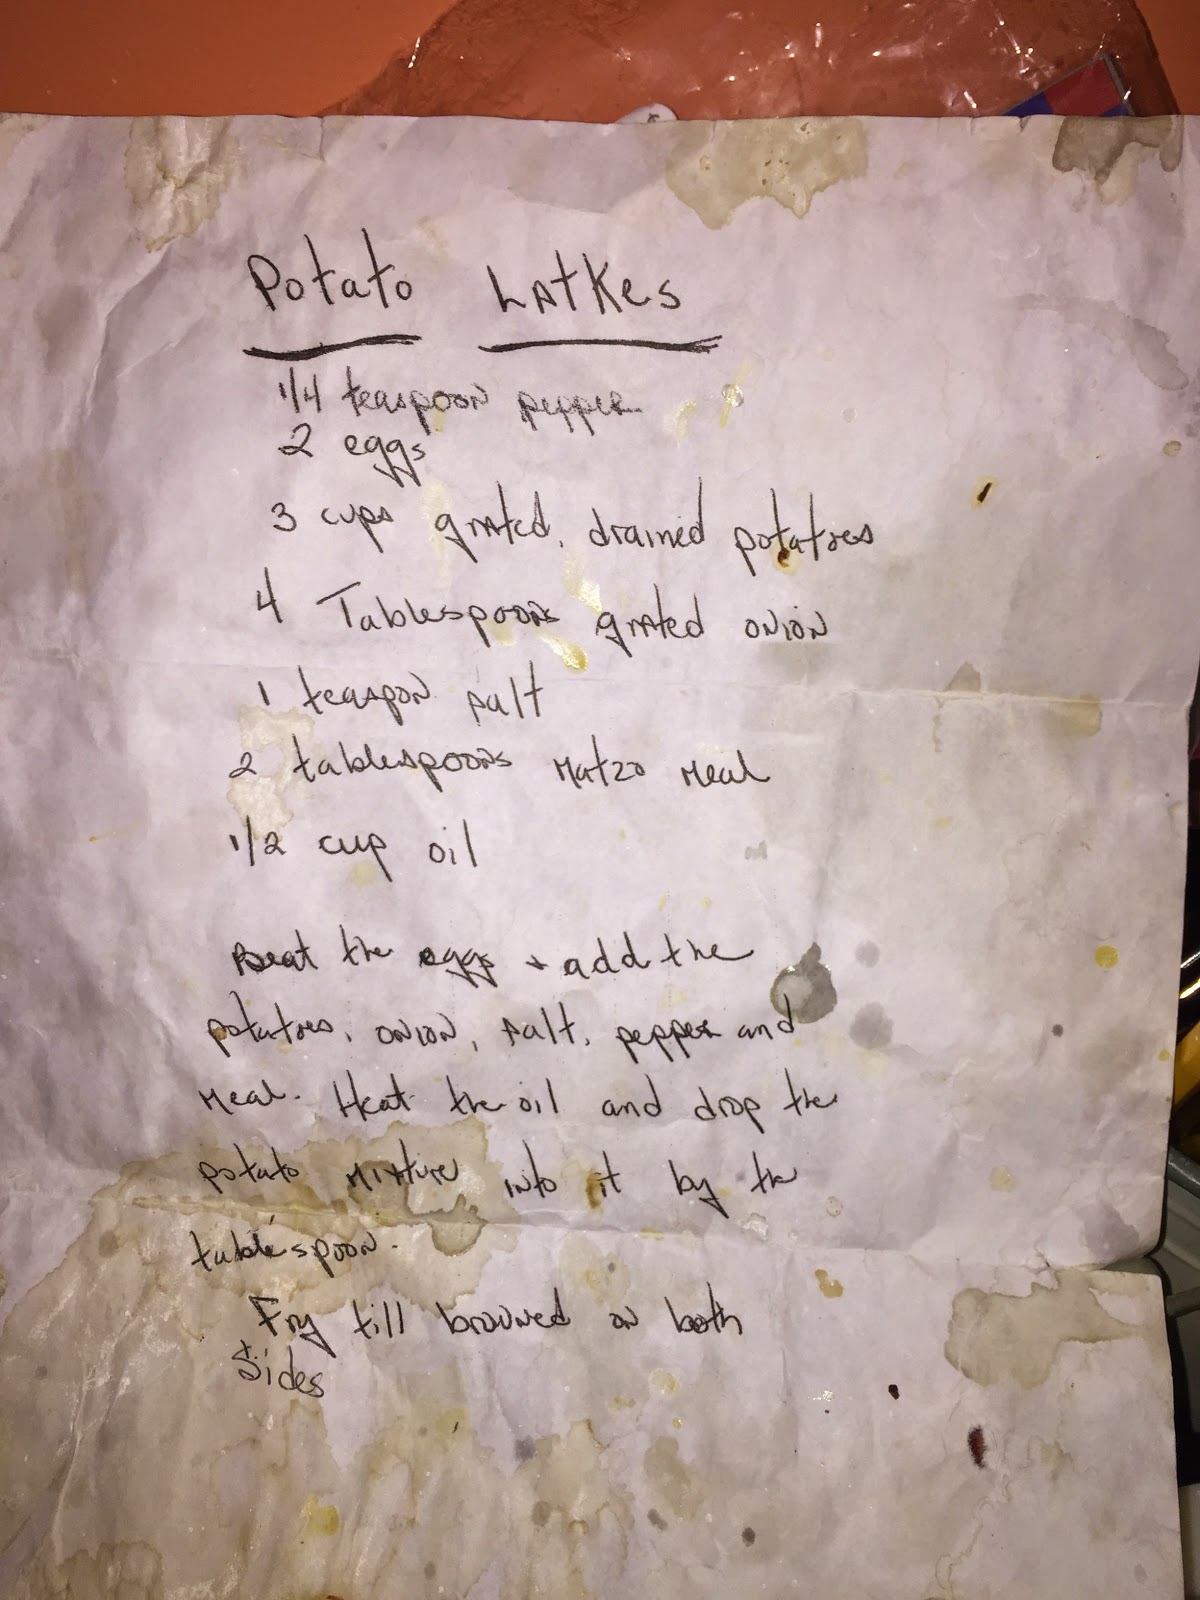 Potato Latkes
1/4 teaspoon pepper
2 eggs
3 cups grated, drained potatoes
4 Tablespoons grated onion
1 teaspon salt
2 tablespoons Matzo Meal
1/2 cup oil
Beat the eggs + add the
potatoes, onion, salt, pepper and
Meal. Heat the oil and drop the
potato mixture into it by the
tablespoon.
Fry till browned on both
Sides